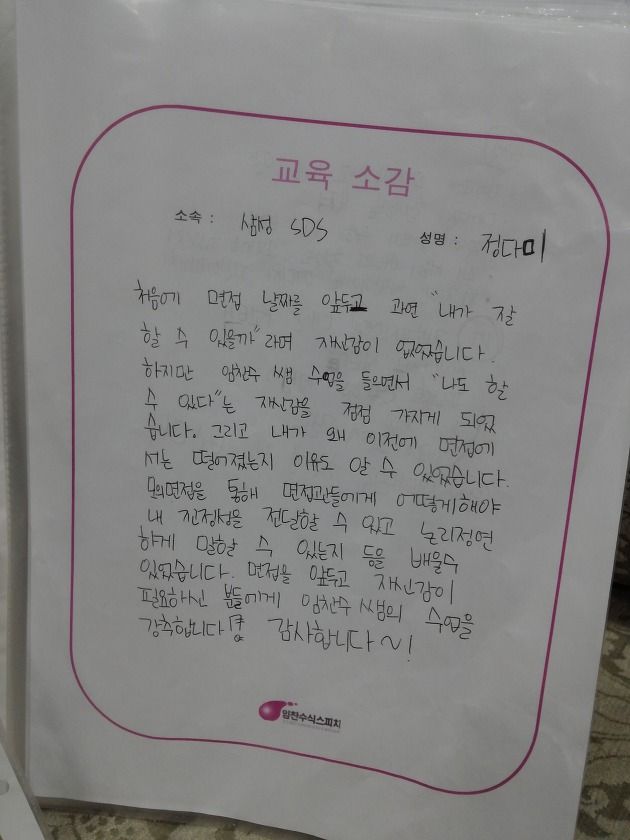 교육 소감
소속 : 삼성 SDS 성명 : 정다미
처음에 면접 날짜를 앞두고 과연 "내가 잘
할 수 있을까"라며 자신감이 없었습니다.
하지만 임찬수 쌤 수업을 들으면서 "나도 할
수 있다"는 자신감을 점점 가지게 되었
습니다. 그리고 내가 왜 이전에 면접에
서는 떨어졌는지 이유도 알 수 있었습니다.
모의면접을 통해 면접관들에게 어떻게해야
내 진정성을 전달할 수 있고 논리정연
하게 말할 수 있는지 등을 배울수
있었습니다. 면접을 앞두고 자신감이
필요하신 분들에게 임찬수 쌤의 수업을
강추합니다! 감사합니다~!
임찬수식스피치